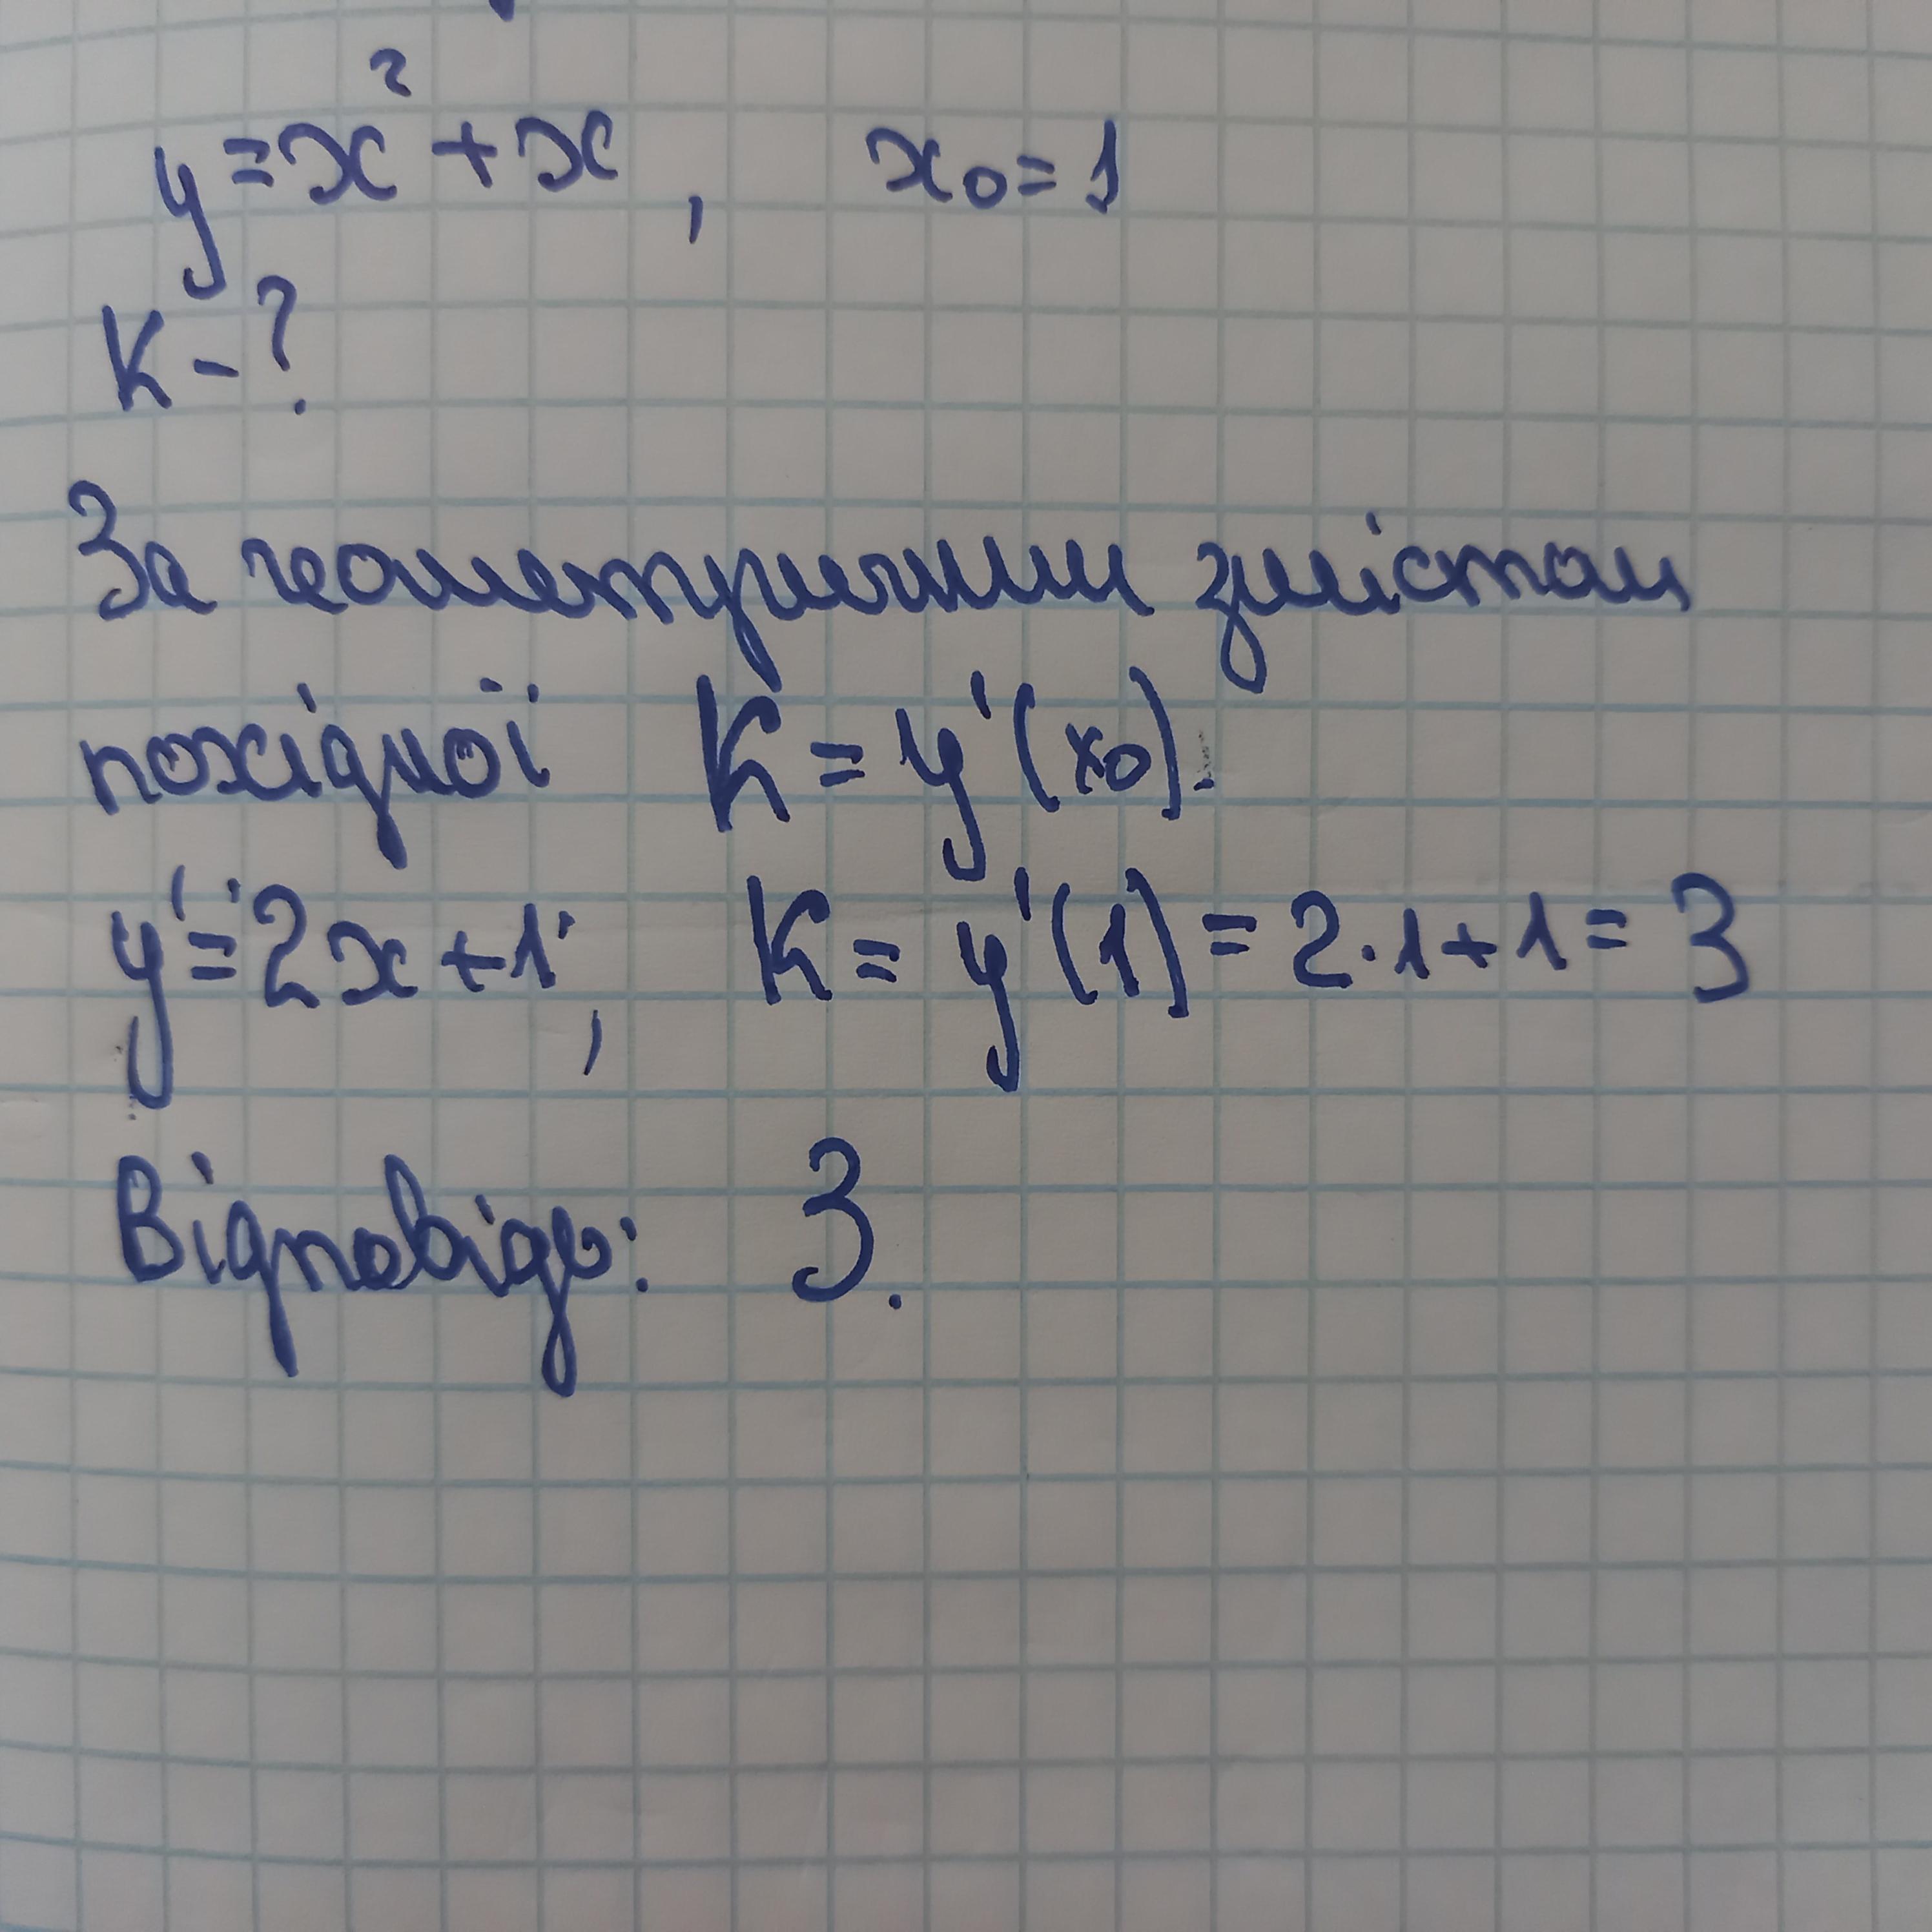 y = x² + x, x₀ = 1
K - ?
За геометричним змістом
похідної K = y'(x₀).
y' = 2x + 1; K = y'(1) = 2·1 + 1 = 3
Відповідь: 3.